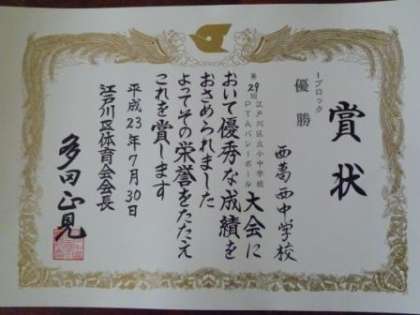 賞状
Iブロック
優勝
西葛西中学校
第29回江戸川区立小中学校
PTAバレーボール大会に
おいて優秀な成績を
おさめられました
よってその栄誉をたたえ
これを賞します
平成23年7月30日
江戸川区体育会会長
多田正見